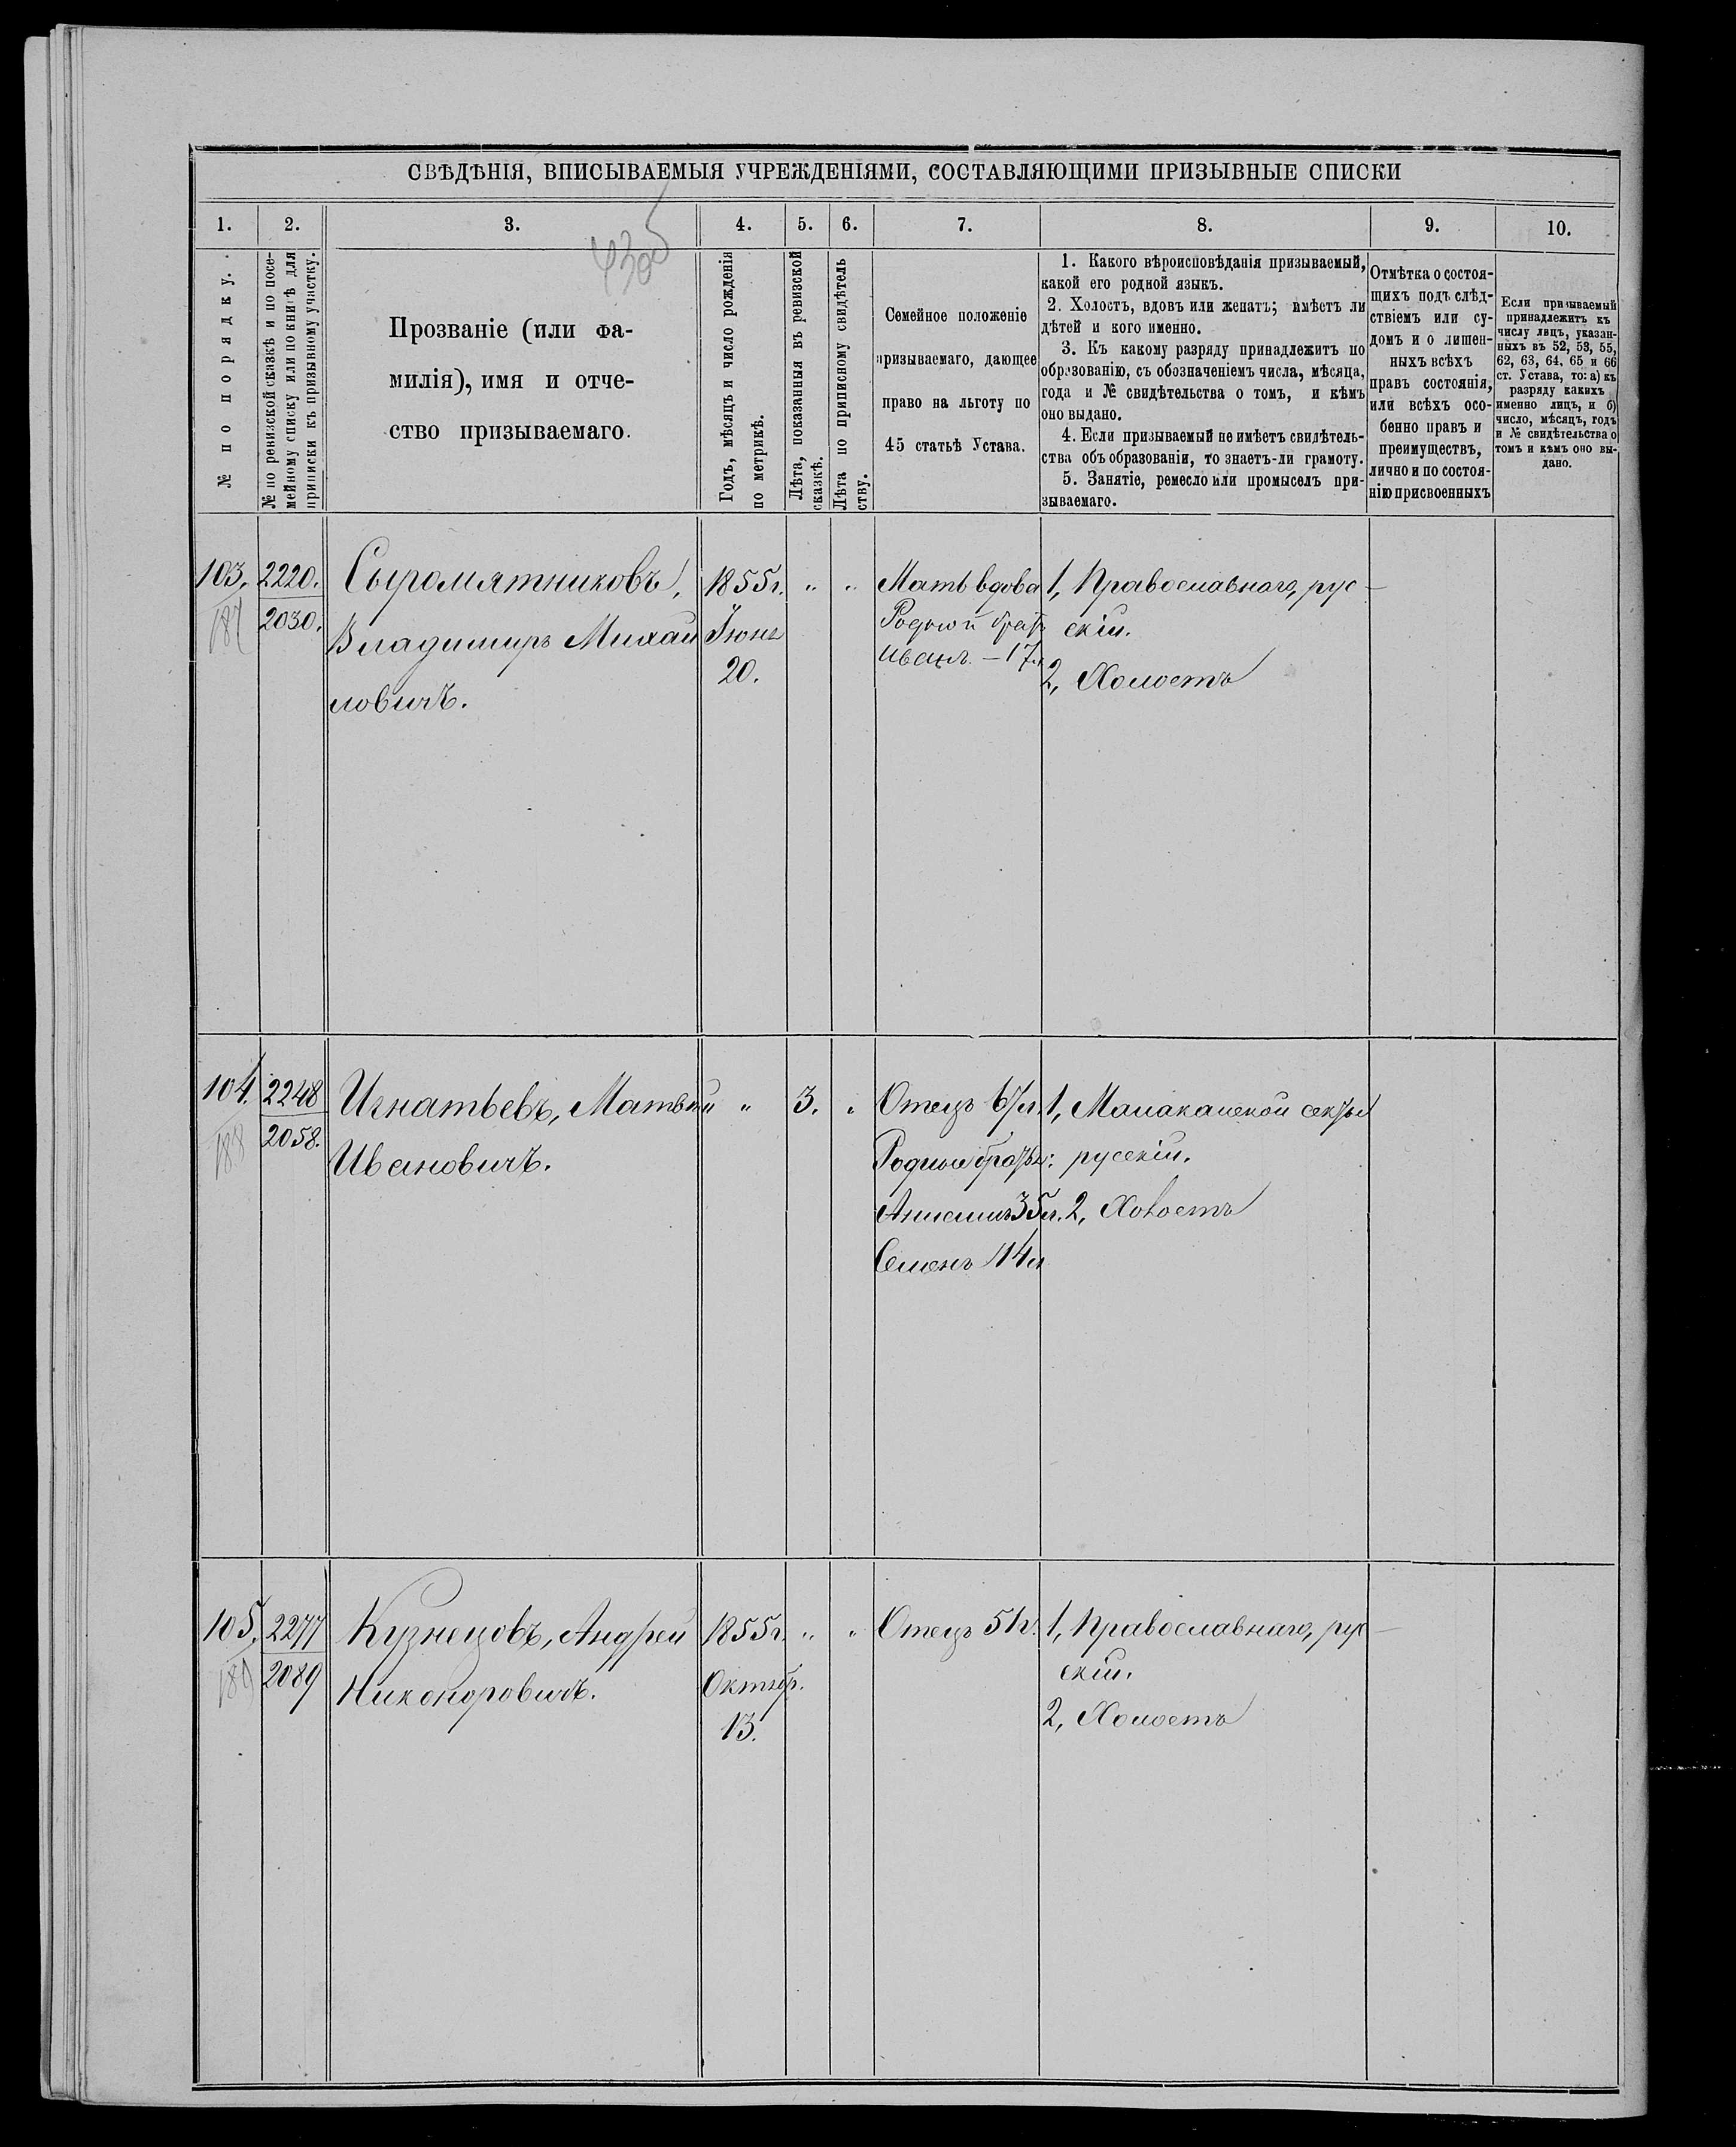 СВѢДѢНІЯ, ВПИСЫВАЕМЫЯ УЧРЕЖДЕНІЯМИ, СОСТАВЛЯЮЩИМИ ПРИЗЫВНЫЕ СПИСКИ
1.
2.
3.
4.
5.
6.
7.
8.
9.
10.
№ по порядку.
№ по ревизской сказкѣ и по посе-
мейному списку или по книгѣ для
приписки къ призывному участку.
Прозваніе (или фа-
милія), имя и отче-
ство призываемаго.
Годъ, мѣсяцъ и число рожденія
по метрикѣ.
Лѣта, показанныя въ ревизской
сказкѣ.
Лѣта по приписному свидѣтель
ству.
Семейное положеніе
призываемаго, дающее
право на льготу по
45 статьѣ Устава.
1. Какого вѣроисповѣданія призываемый,
какой его родной языкъ.
2. Холостъ, вдовъ или женатъ; имѣетъ ли
дѣтей и кого именно.
3. Къ какому разряду принадлежитъ по
образованію, съ обозначеніемъ числа, мѣсяца,
года и № свидѣтельства о томъ, и кѣмъ
оно выдано.
4. Если призываемый не имѣетъ свидѣтель-
ства объ образованіи, то знаетъ-ли грамоту.
5. Занятіе, ремесло или промыселъ при-
зываемаго.
Отмѣтка о состоя-
щихъ подъ слѣд-
ствіемъ или су-
домъ и о лишен-
ныхъ всѣхъ
правъ состоянія,
или всѣхъ осо-
бенно правъ и
преимуществъ,
лично и по состоя-
нію присвоенныхъ
Если призываемый
принадлежитъ къ
числу лицъ, указан-
ныхъ въ 52, 53, 55,
62, 63, 64, 65 и 66
ст. Устава, то: а) къ
разряду какихъ
именно лицъ, и б)
число, мѣсяцъ, годъ
и № свидѣтельства о
томъ и кѣмъ оно вы-
дано.
103.
187
2220.
2030.
Сыромятниковъ,
Владимиръ Михаи
ловичъ.
1855г.
Іюнь
20.
" "
Мать вдова
Родной братъ
Иванъ – 17л.
1, Православнаго, рус –
скій.
2, Холостъ
104.
188
2248
2058.
Игнатьевъ, Матвѣй
Ивановичъ.
" 3. "
Отецъ 67л.
Родные братья:
Анисимъ 35л.
Семенъ 14л
1, Малаканской секты
русскій.
2, Холостъ
105.
189
2277
2089
Кузнецовъ, Андрей
Никоноровичъ.
1855г.
Октябр.
13.
" "
Отецъ 51г.
1, Православнаго, рус –
скій.
2, Холостъ